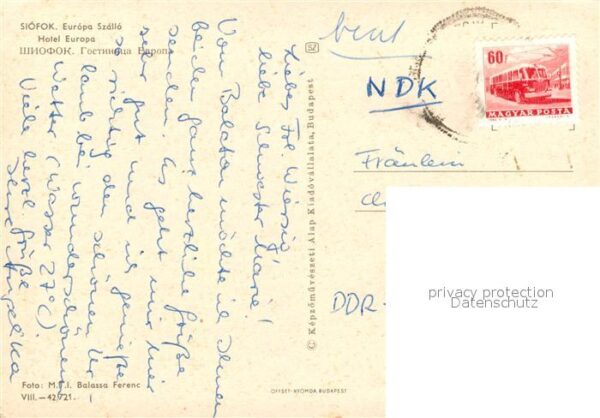 SIÓFOK. Európa Szálló
Hotel Europa
ШИОФОК. Гостиница Европа
Liebes Frl.
liebe Schwester Marie!
Vom Balaton möchte ich Ihnen
beiden ganz herzliche Grüße
senden. Es geht mir hier
sehr gut und ich genieße
so richtig den schönen Ur
laub bei wunderschönem
Wetter (Wasser 27°C).
Viele herzl. Grüße
Ihre Angelika
Foto: M.T.I. Balassa Ferenc
VIII.—42721.
© Képzőművészeti Alap Kiadóvállalata, Budapest
OFFSET-NYOMDA BUDAPEST
NDK
60f
MAGYAR POSTA
Fräulein
DDR-
privacy protection
Datenschutz